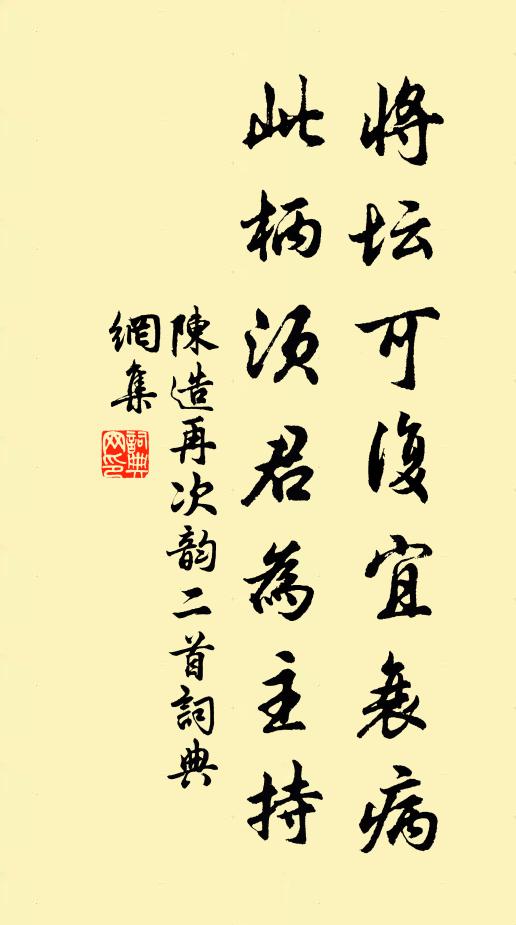 将坛可復宜衰病
此柄須君為主持
陳造再次韵二首詞典
網集
詞典網印